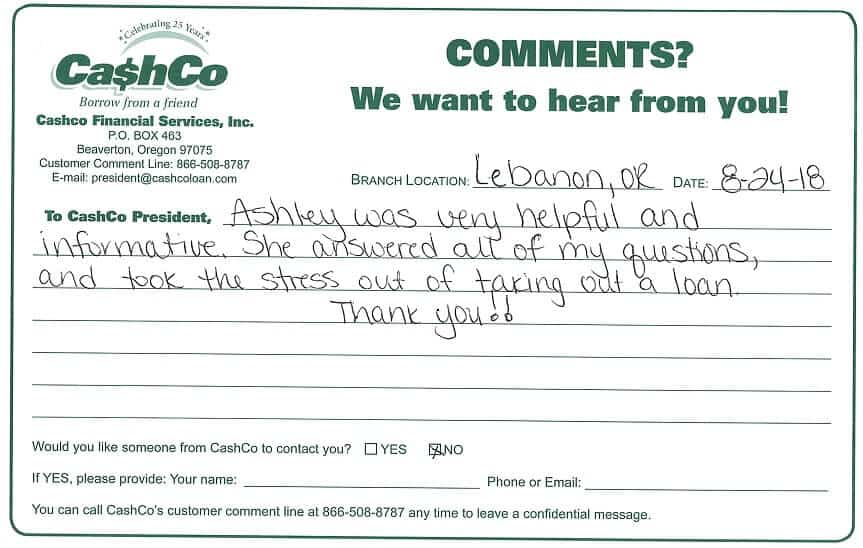 *Celebrating 25 Years*
Ca$hCo
Borrow from a friend
Cashco Financial Services, Inc.
P.O. BOX 463
Beaverton, Oregon 97075
Customer Comment Line: 866-508-8787
E-mail: president@cashcoloan.com
COMMENTS?
We want to hear from you!
BRANCH LOCATION: Lebanon, OR DATE: 8-24-18
To CashCo President, Ashley was very helpful and
informative. She answered all of my questions,
and took the stress out of taking out a loan.
Thank you!!
Would you like someone from CashCo to contact you? ☐ YES ☒ NO
If YES, please provide: Your name: Phone or Email:
You can call CashCo's customer comment line at 866-508-8787 any time to leave a confidential message.